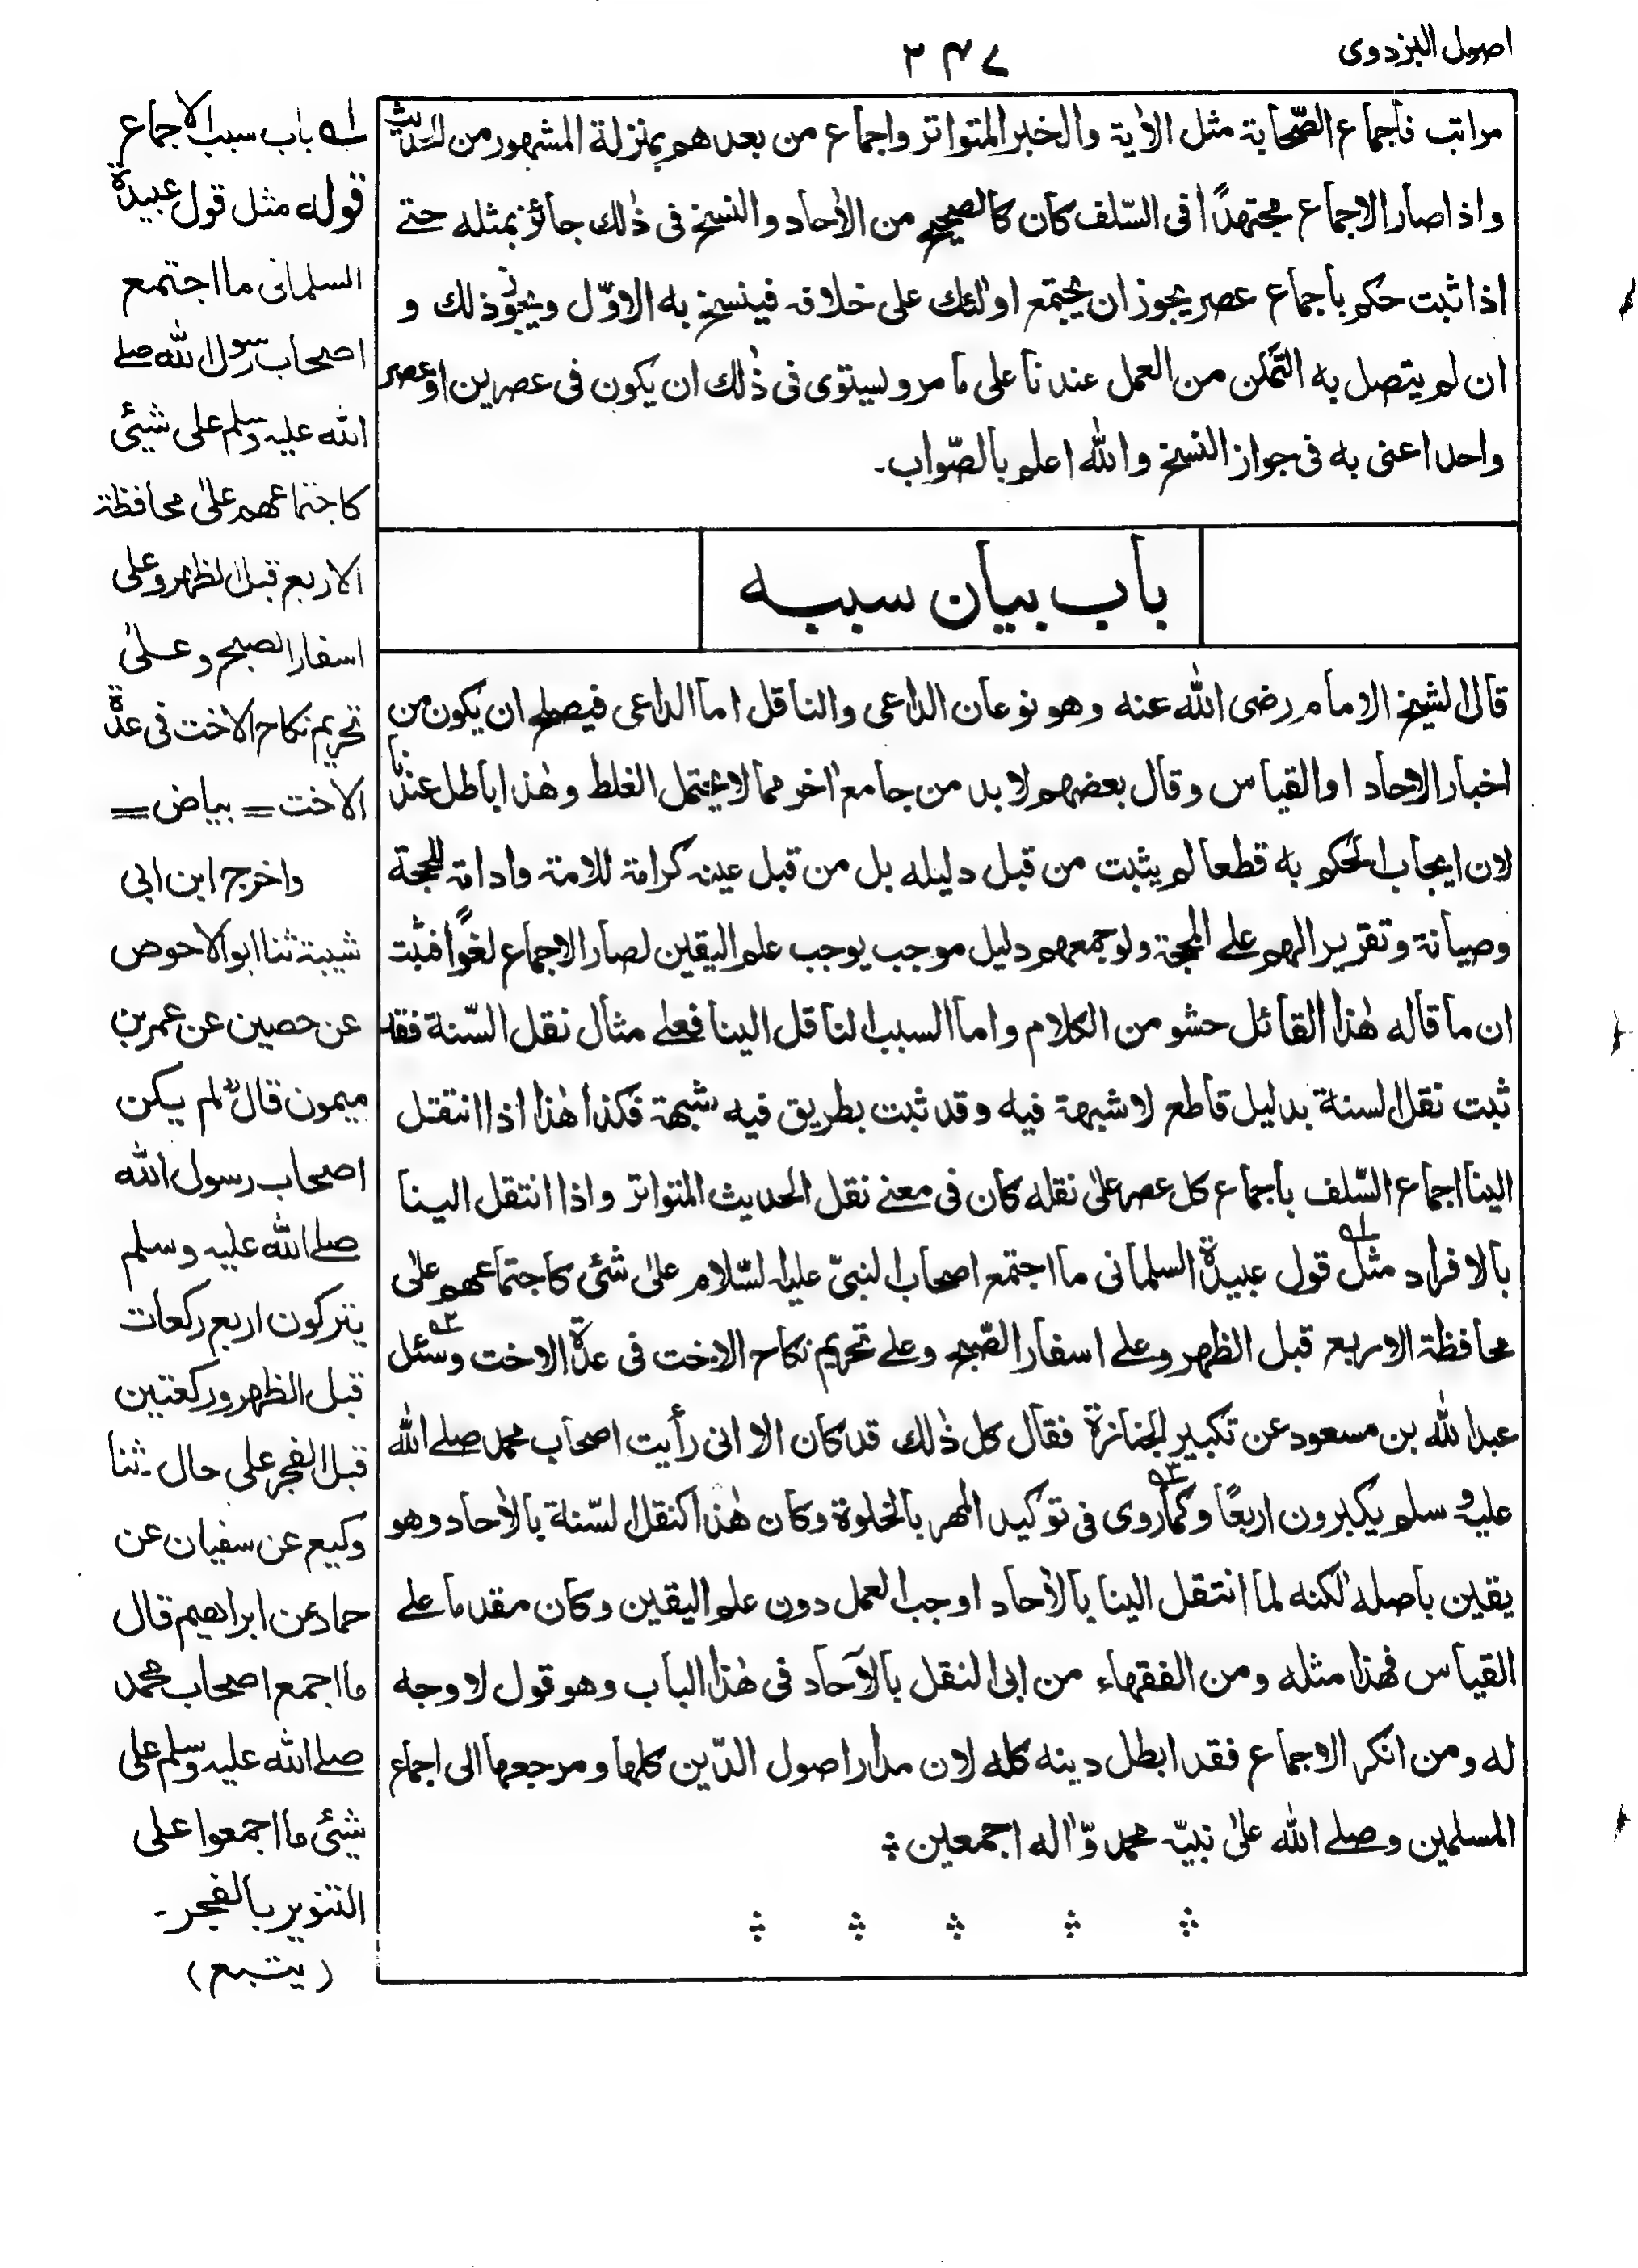 اصول البزدوی
۲۴۷
مراتب فاجماع الصّحابة مثل الاٰیة والخبر المتواتر واجماع من بعدهم بمنزلة المشهور من الحدیث
واذا صار الاجماع مجتهدًا فی السّلف کان کالصحیح من الاٰحاد والنسخ فی ذٰلك جائز بمثله حتے
اذا ثبت حکم باجماع عصر یجوز ان یجتمع اولٰئك علی خلافه فینسخ به الاوّل ویجوز ذلك و
ان لم یتصل به التمکن من العمل عندنا علی ما مر ویستوی فی ذٰلك ان یکون فی عصرین او عصر
واحد اعنی به فی جواز النسخ والله اعلم بالصّواب۔
باب بیان سببه
قال الشیخ الامام رضی الله عنه وهو نوعان الداعی والناقل اما الداعی فیصلح ان یکون من
اخبار الاٰحاد او القیاس وقال بعضهم لا بد من جامع اٰخر مما لا یحتمل الغلط وهٰذا باطل عندنا
لان ایجاب الحکم به قطعا لم یثبت من قبل دلیله بل من قبل عینه کرامة للامة وادامة للحجة
وصیانة وتقریر الهم علے المحجة ولو جمعهم دلیل موجب یوجب علم الیقین لصار الاجماع لغوًا فثبت
ان ما قاله هٰذا القائل حشو من الکلام واما السبب الناقل الینا فعلے مثال نقل السّنة فقد
ثبت نقل السنة بدلیل قاطع لا شبهة فیه وقد ثبت بطریق فیه شبهة فکذا هٰذا اذا انتقل
الینا اجماع السّلف باجماع کل عصر علیٰ نقله کان فی معنے نقل الحدیث المتواتر واذا انتقل الینا
بالافراد مثل ۱؎ قول عبیدة السلمانی ما اجتمع اصحاب النبیّ علیه السّلام علیٰ شئی کاجتماعهم علیٰ
محافظة الاربع قبل الظهر وعلے اسفار الصّبح وعلے تحریم نکاح الاخت فی عدّة الاخت ۲؎ وسئل
عبد الله بن مسعود عن تکبیر الجنازة فقال کل ذٰلك قد کان الا انی رأیت اصحاب محمد صلے الله
علیه وسلم یکبرون اربعًا وکما ۳؎ روی فی توکید المهر بالخلوة وکان هٰذا کنقل السّنة بالاٰحاد وهو
یقین باصله لٰکنه لما انتقل الینا بالاٰحاد اوجب العمل دون علم الیقین وکان مقدما علے
القیاس فهٰذا مثله ومن الفقهاء من ابی النقل بالآحاد فی هٰذا الباب وهو قول لا وجه
له ومن انکر الاجماع فقد ابطل دینه کله لان مدار اصول الدّین کلها ومرجعها الی اجماع
المسلمین وصلے الله علیٰ نبیّه محمد وّاٰله اجمعین ؞
؞ ؞ ؞ ؞ ؞
۱؎ باب سبب الاجماع
قوله مثل قول عبیدة
السلمانی ما اجتمع
اصحاب رسول الله صلے
الله علیه وسلم علی شیئی
کاجتماعهم علیٰ محافظة
الاربع قبل الظهر وعلی
اسفار الصبح وعلیٰ
تحریم نکاح الاخت فی عدّة
الاخت = بیاض =
واخرج ابن ابی
شیبة ثنا ابو الاحوص
عن حصین عن عمر بن
میمون قال لم یکن
اصحاب رسول الله
صلے الله علیه وسلم
یترکون اربع رکعات
قبل الظهر ورکعتین
قبل الفجر علی حال۔ ثنا
وکیع عن سفیان عن
حماد عن ابراهیم قال
ما اجمع اصحاب محمد
صلے الله علیه وسلم علی
شیئی ما اجمعوا علی
التنویر بالفجر۔
(یتبع)